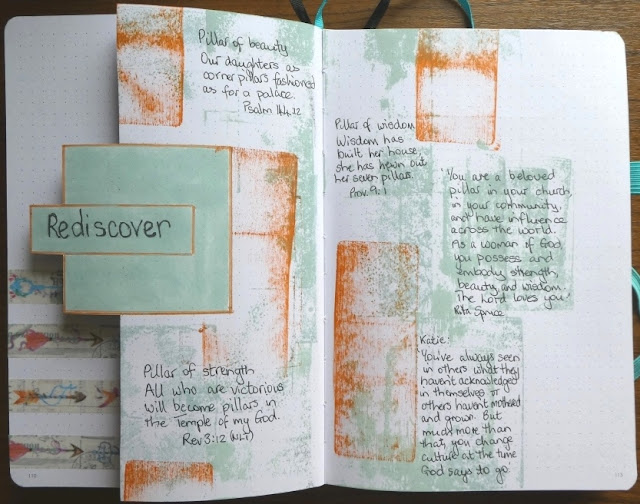 Pillar of beauty
Our daughters as
corner pillars fashioned
as for a palace.
Psalm 144:12
Rediscover
Pillar of strength
All who are victorious
will become pillars in
the Temple of my God.
Rev 3:12 (NLT)
Pillar of wisdom
Wisdom has
built her house,
she has hewn out
her seven pillars.
Prov. 9:1
'You are a beloved
pillar in your church,
in your community,
and have influence
across the world.
As a woman of God
you possess and
embody strength,
beauty and wisdom.
The Lord loves you!'
Rita Spruce
Katie:
'You've always seen
in others what they
havent acknowledged
in themselves or
others havent mothered
and grown. But
much more than
that, you change
culture at the time
God says to go.'